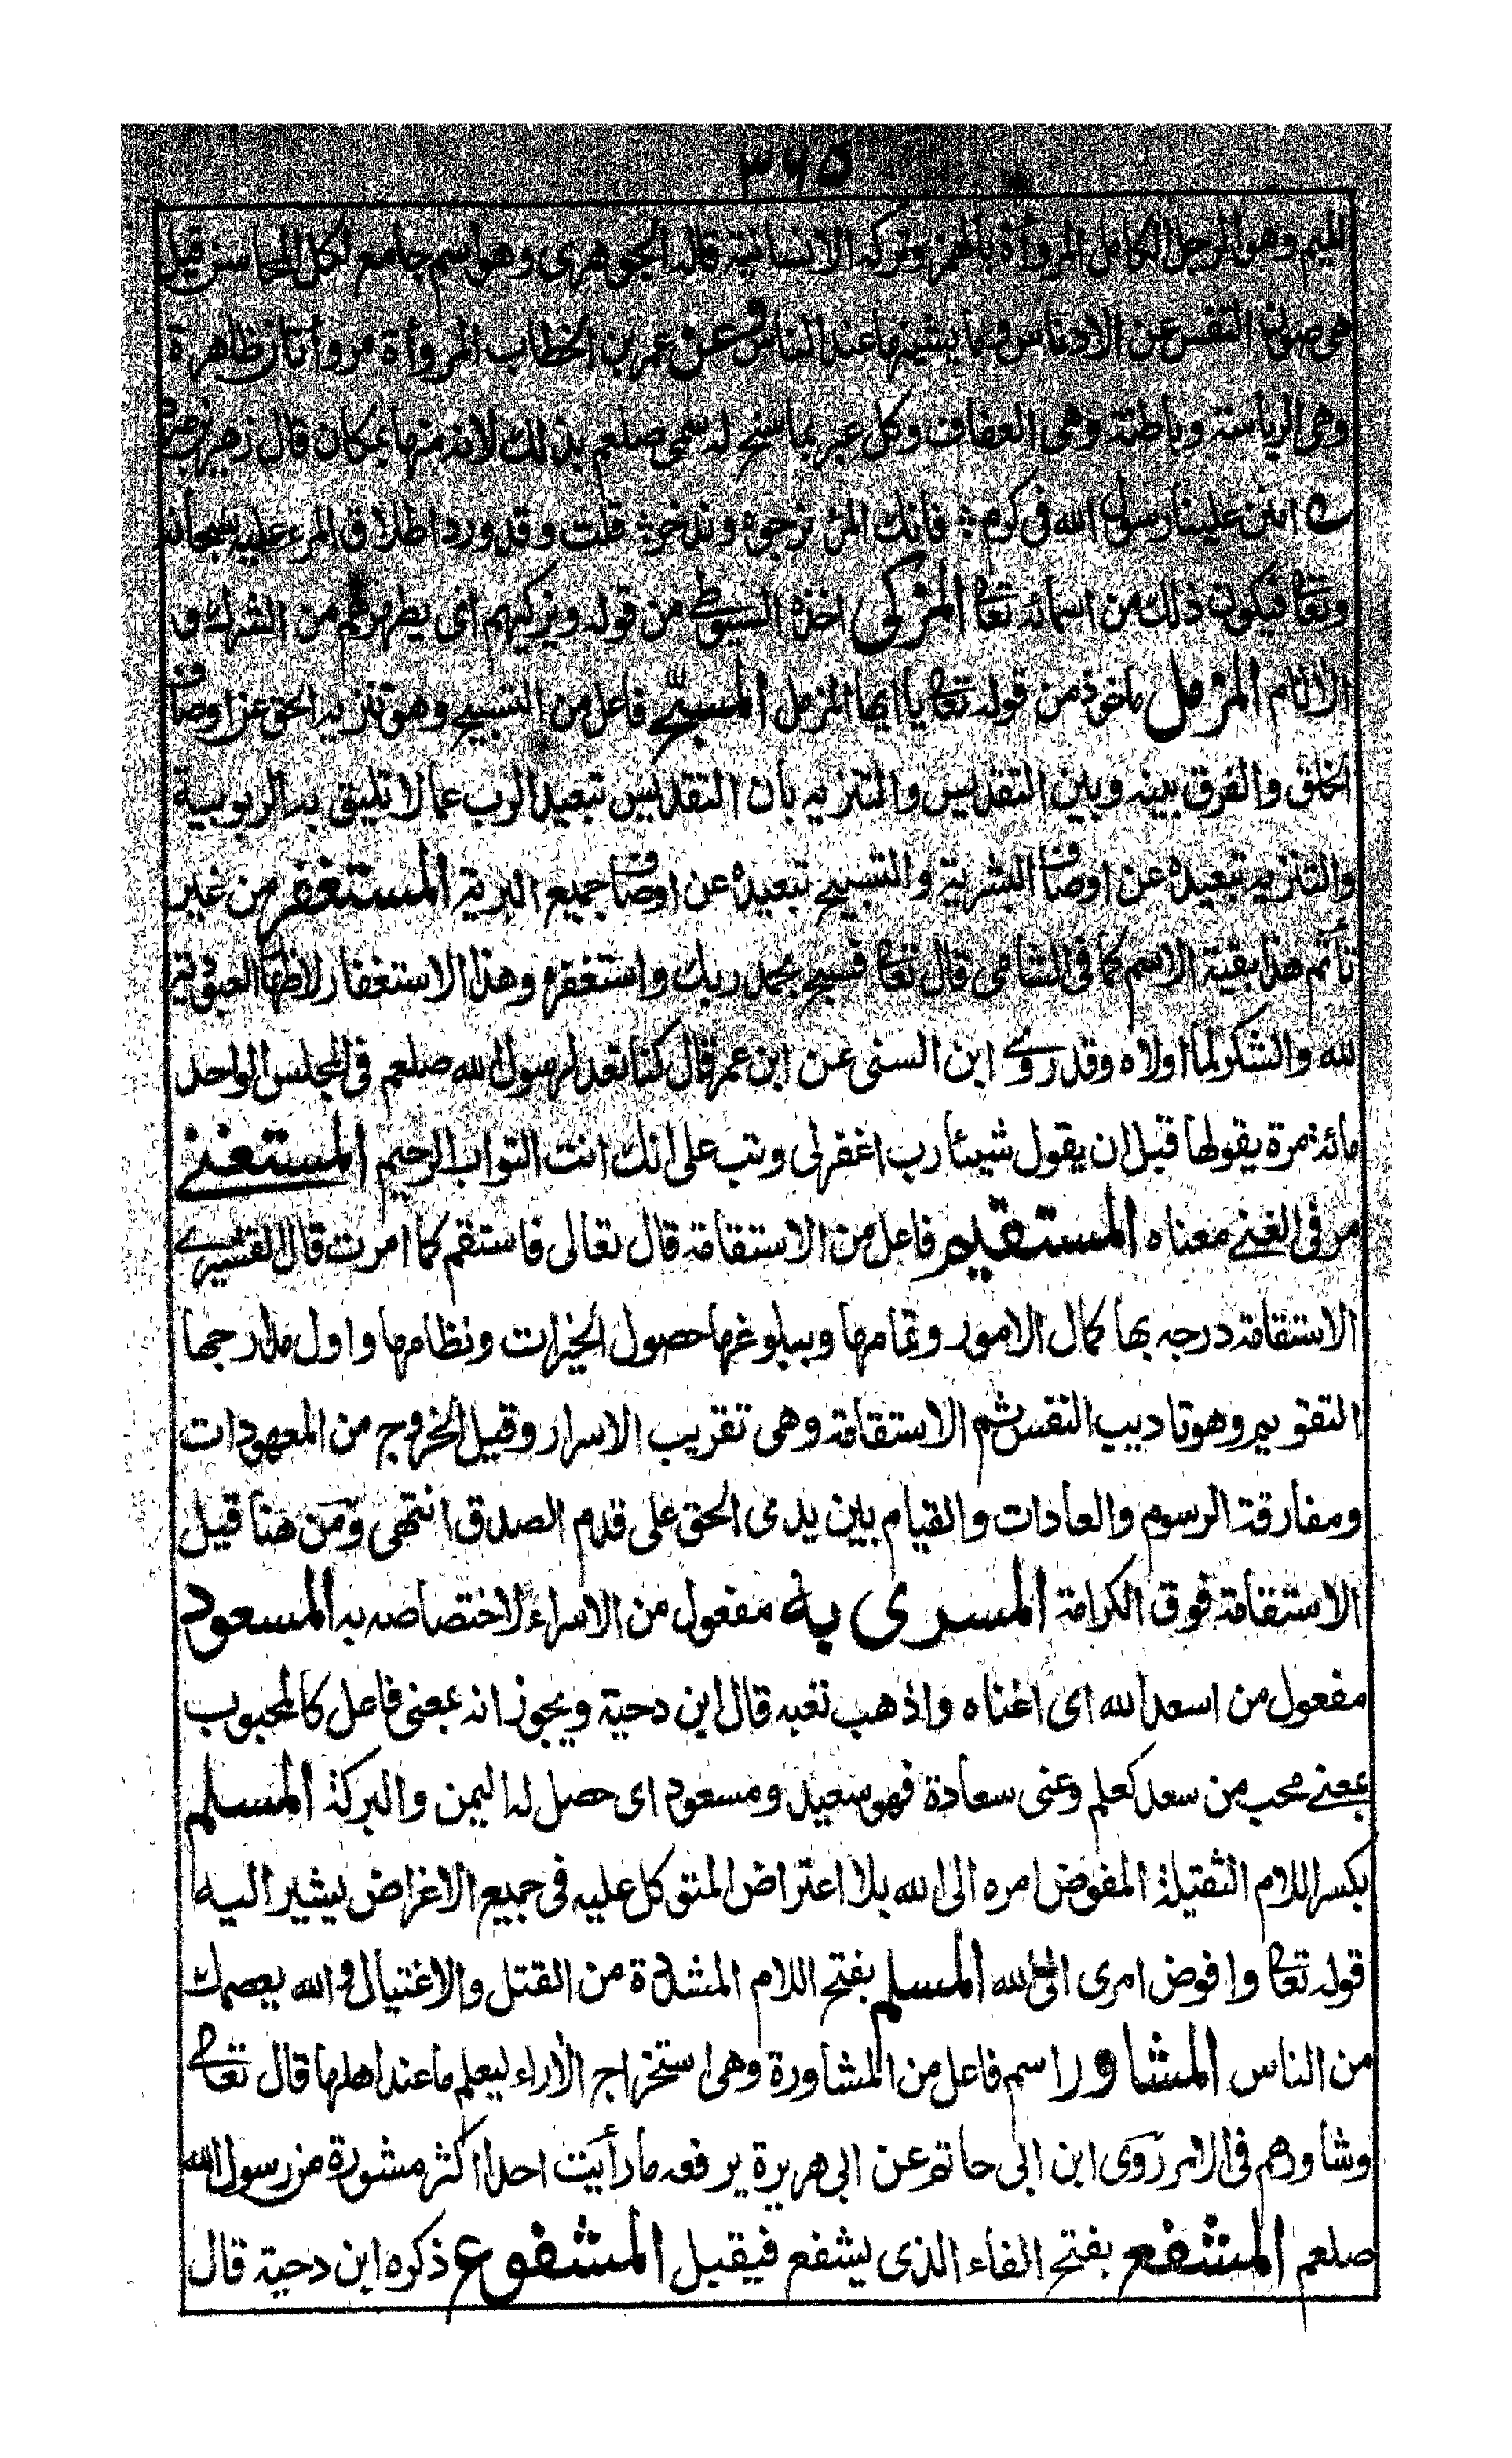 ٣٦٥
الميم وهو الرجل الكامل المروأة بالهمز وتركه الانسانية قاله الجوهرى وهو اسم جامع لكل المحاسن قيل
هى صيانة النفس عن الادناس وما يشينها عند الناس وعن عمر بن الخطاب المروأة مروأتان ظاهرة
وهى الرياسة وباطنة وهى العفاف وكل عبر بما سنح له سمى صلعم بذلك لانه منها بمكان قال زهير بن صرد
امنن علينا رسول الله فى كرم فانك المرء نرجوه وندخر قلت وقد ورد اطلاق المرء عليه سبحانه
وتعا فيكون ذلك من اسمائه تعا المزكى اخذه السيوطى من قوله ويزكيهم اى يطهرهم من الشرك و
الاثام المزمل ماخوذ من قوله تعا يا ايها المزمل المسبّح فاعل من التسبيح وهو تنزيه الحق عن اوصاف
الخلق والفرق بينه وبين التقديس والتنزيه بان التقديس تبعيد الرب عما لا تليق به الربوبية
والتنزيه تبعيده عن اوصاف البشرية والتسبيح تبعيده عن اوصاف جميع البرية المستغفر من غير
تأثم هذا بقية الاسم كما فى الشامى قال تعا فسبح بحمد ربك واستغفره وهذا الاستغفار لاظهار العبودية
لله والشكر لما اولاه وقد روى ابن السنى عن ابن عمر قال كنا نعد لرسول الله صلعم فى المجلس الواحد
مائة مرة يقولها قبل ان يقول شيئا رب اغفر لى وتب على انك انت التواب الرحيم المستغنے
مر فى الغنے معناه المستقيم فاعل من الاستقامة قال تعالى فاستقم كما امرت قال القشيرے
الاستقامة درجه بها كمال الامور وتمامها وببلوغها حصول الخيرات ونظامها واول مدارجها
التقويم وهو تاديب النفس ثم الاستقامة وهى تقريب الاسرار وقيل الخروج من المعهودات
ومفارقة الرسوم والعادات والقيام بين يدى الحق على قدم الصدق انتهى ومن هنا قيل
الاستقامة فوق الكرامة المسرى به مفعول من الاسراء لاختصاصه به المسعود
مفعول من اسعد الله اى اغناه واذهب تعبه قال ابن دحية ويجوز انه بمعنى فاعل كالمحبوب
بمعنے محب من سعد كعلم وعنى سعادة فهو سعيد ومسعود اى حصل له اليمن والبركة المسلم
بكسر اللام الثقيلة المفوض امره الى الله بلا اعتراض المتوكل عليه فى جميع الاغراض يشير اليه
قوله تعا وافوض امرى الى الله المسلم بفتح اللام المشددة من القتل والاغتيال والله يعصمك
من الناس المشاور اسم فاعل من المشاورة وهى استخراج الأراء ليعلم ما عند اهلها قال تعالے
وشاورهم فى الامر روى ابن ابى حاتم عن ابى هريرة يرفعه ما رأيت احدا اكثر مشورة من رسول الله
صلعم المشفع بفتح الفاء الذى يشفع فيقبل المشفوع ذكره ابن دحية قال